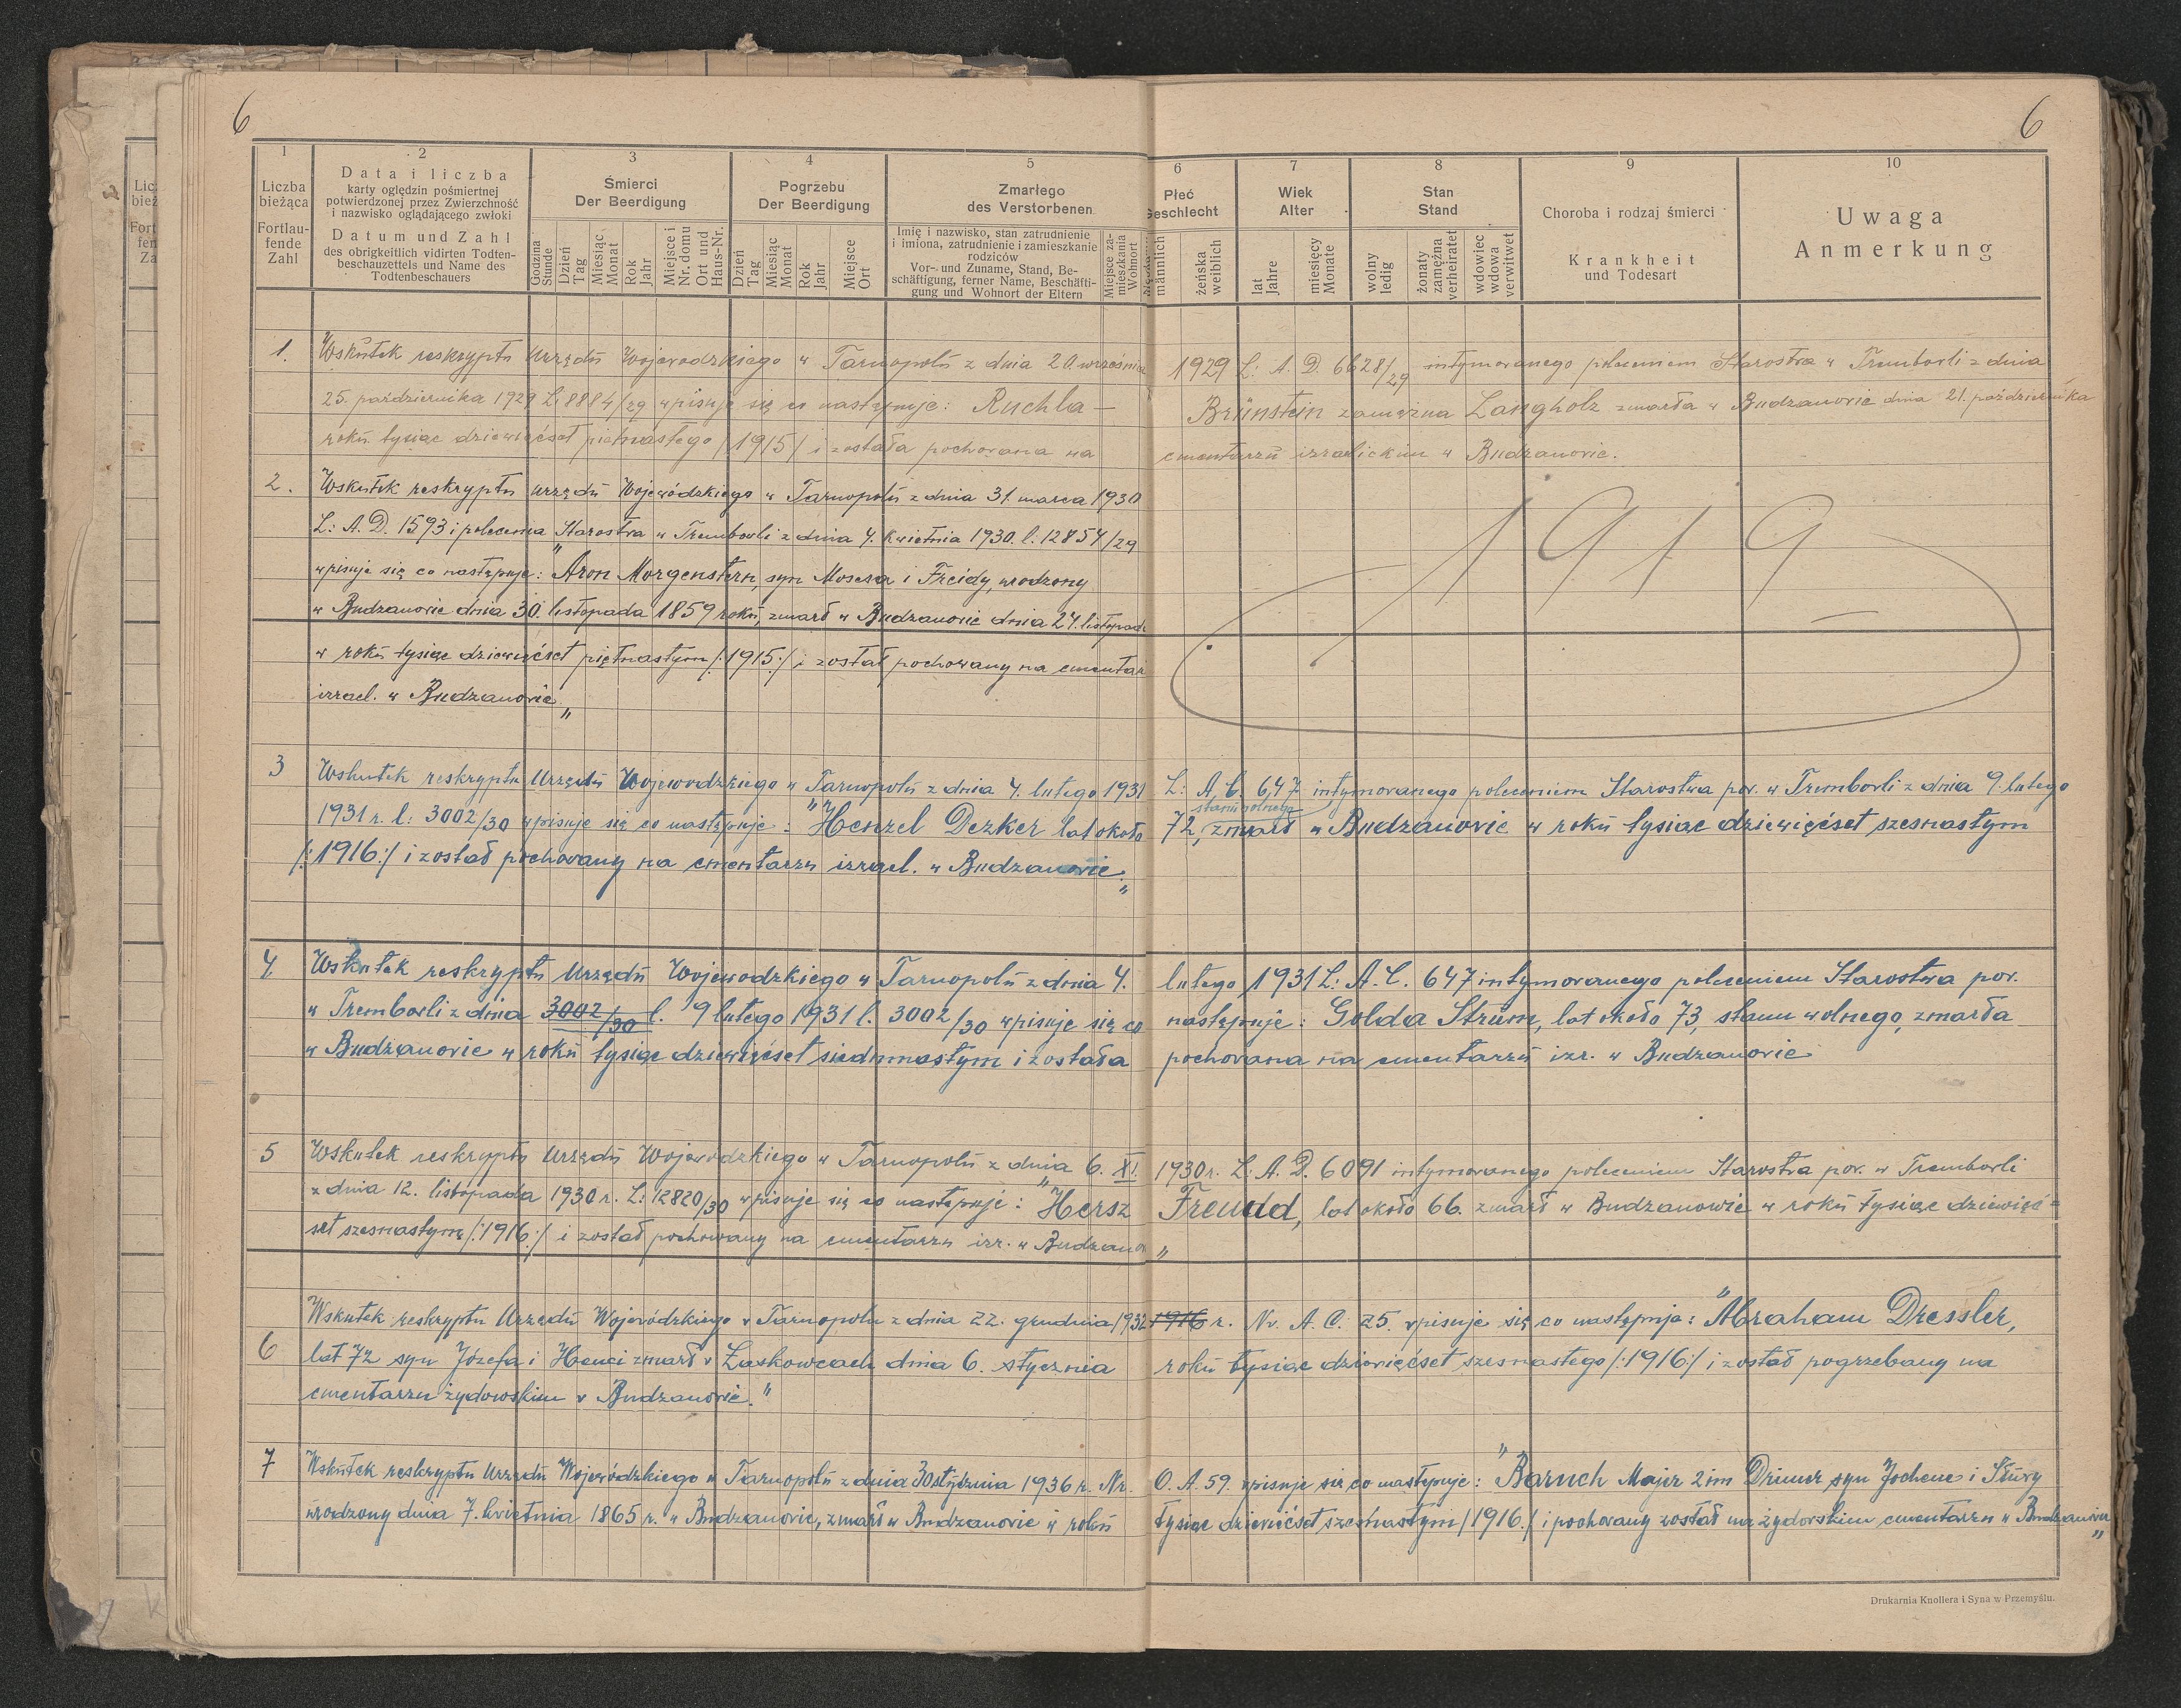 6
6
1
2
3
4
5
6
7
8
9
10
Liczba bieżąca
Fortlaufende Zahl
Data i liczba
karty oględzin pośmiertnej
potwierdzonej przez Zwierzchność
i nazwisko oglądającego zwłoki
Datum und Zahl
des obrigkeitlich vidirten Todten-
beschauzettels und Name des
Todtenbeschauers
Śmierci
Der Beerdigung
Godzina Stunde
Dzień Tag
Miesiąc Monat
Rok Jahr
Miejsce i Nr. domu Ort und Haus-Nr.
Pogrzebu
Der Beerdigung
Dzień Tag
Miesiąc Monat
Rok Jahr
Miejsce Ort
Zmarłego
des Verstorbenen
Imię i nazwisko, stan zatrudnienie
i imiona, zatrudnienie i zamieszkanie
rodziców
Vor- und Zuname, Stand, Be-
schäftigung, ferner Name, Beschäfti-
gung und Wohnort der Eltern
Miejsce za-
mieszkania
Wohnort
Płeć
Geschlecht
męska
männlich
żeńska
weiblich
Wiek
Alter
lat
Jahre
miesięcy
Monate
Stan
Stand
wolny
ledig
żonaty
zamężna
verheiratet
wdowiec
wdowa
verwitwet
Choroba i rodzaj śmierci
Krankheit
und Todesart
Uwaga
Anmerkung
1. Wskutek reskryptu Urzędu Wojewodzkiego w Tarnopolu z dnia 20. września 1929 L: A. D. 6628/29 intymowanego poleceniem Starostwa w Trembowli z dnia
25. października 1929 L: 8884/29 wpisuje się co następuje: Ruchla — Brünstein zamężna Langholz zmarła w Budzanowie dnia 21. października
roku tysiąc dziewięćset piętnastego /1915/ i została pochowana na cmentarzu izraelickim w Budzanowie.
2. Wskutek reskryptu urzędu Wojewódzkiego w Tarnopolu z dnia 31. marca 1930
L: A. D. 1593 i polecenia Starostwa w Trembowli z dnia 4. kwietnia 1930. l. 12854/29
wpisuje się co następuje: "Aron Morgenstern, syn Mosesa i Freidy, urodzony
w Budzanowie dnia 30. listopada 1859 roku, zmarł w Budzanowie dnia 24. listopada
w roku tysiąc dziewięćset piętnastym /:1915:/ i został pochowany na cmentar
izrael. w Budzanowie"
1919
3 Wskutek reskryptu Urzędu Wojewodzkiego w Tarnopolu z dnia 4. lutego 1931 L: A. C. 647 intymowanego poleceniem Starostwa pow. w Trembowli z dnia 9. lutego
stanu wolnego
1931 r. l: 3002/30 wpisuje się co następuje: "Henzel Dezker lat około 72, zmarł w Budzanowie w roku tysiąc dziewięćset szesnastym
/:1916:/ i został pochowany na cmentarzu izrael. w Budzanowie."
4. Wskutek reskryptu Urzędu Wojewodzkiego w Tarnopolu z dnia 4. lutego 1931 L: A. C. 647 intymowanego poleceniem Starostwa pow.
w Trembowli z dnia 3002/30 l. 9 lutego 1931 l. 3002/30 wpisuje się co następuje: Golda Strüm, lat około 73, stanu wolnego, zmarła
w Budzanowie w roku tysiąc dziewięćset siedmnastym i została pochowana na cmentarzu izr. w Budzanowie
5 Wskutek reskryptu Urzędu Wojewódzkiego w Tarnopolu z dnia 6. XI. 1930 r. L: A. D. 6091 intymowanego poleceniem Starostwa pow. w Trembowli
z dnia 12. listopada 1930 r. L: 12820/30 wpisuje się co następuje: "Hersz Freudd, lat około 66. zmarł w Budzanowie w roku tysiąc dziewięć=
set szesnastym /:1916:/ i został pochowany na cmentarzu izr. w Budzanow"
6 Wskutek reskryptu Urzędu Wojewódzkiego w Tarnopolu z dnia 22. grudnia 1932 1916 r. Nr. A. C. 25. wpisuje się co następuje: "Abraham Dressler,
lat 72 syn Józefa i Henci zmarł w Łaskowcach dnia 6. stycznia roku tysiąc dziewięćset szesnastego /:1916:/ i został pogrzebany na
cmentarzu żydowskim w Budzanowie."
7 Wskutek reskryptu Urzędu Wojewódzkiego w Tarnopolu z dnia 30 stycznia 1936 r. Nr. O. A. 59. wpisuje się co następuje: "Baruch Majer 2 im Drimer syn Jochene i Sŭry
urodzony dnia 7. kwietnia 1865 r. w Budzanowie, zmarł w Budzanowie w roku tysiąc dziewięćset szesnastym /1916./ i pochowany został na żydowskim cmentarzu w Budzanowie"
Drukarnia Knollera i Syna w Przemyślu.